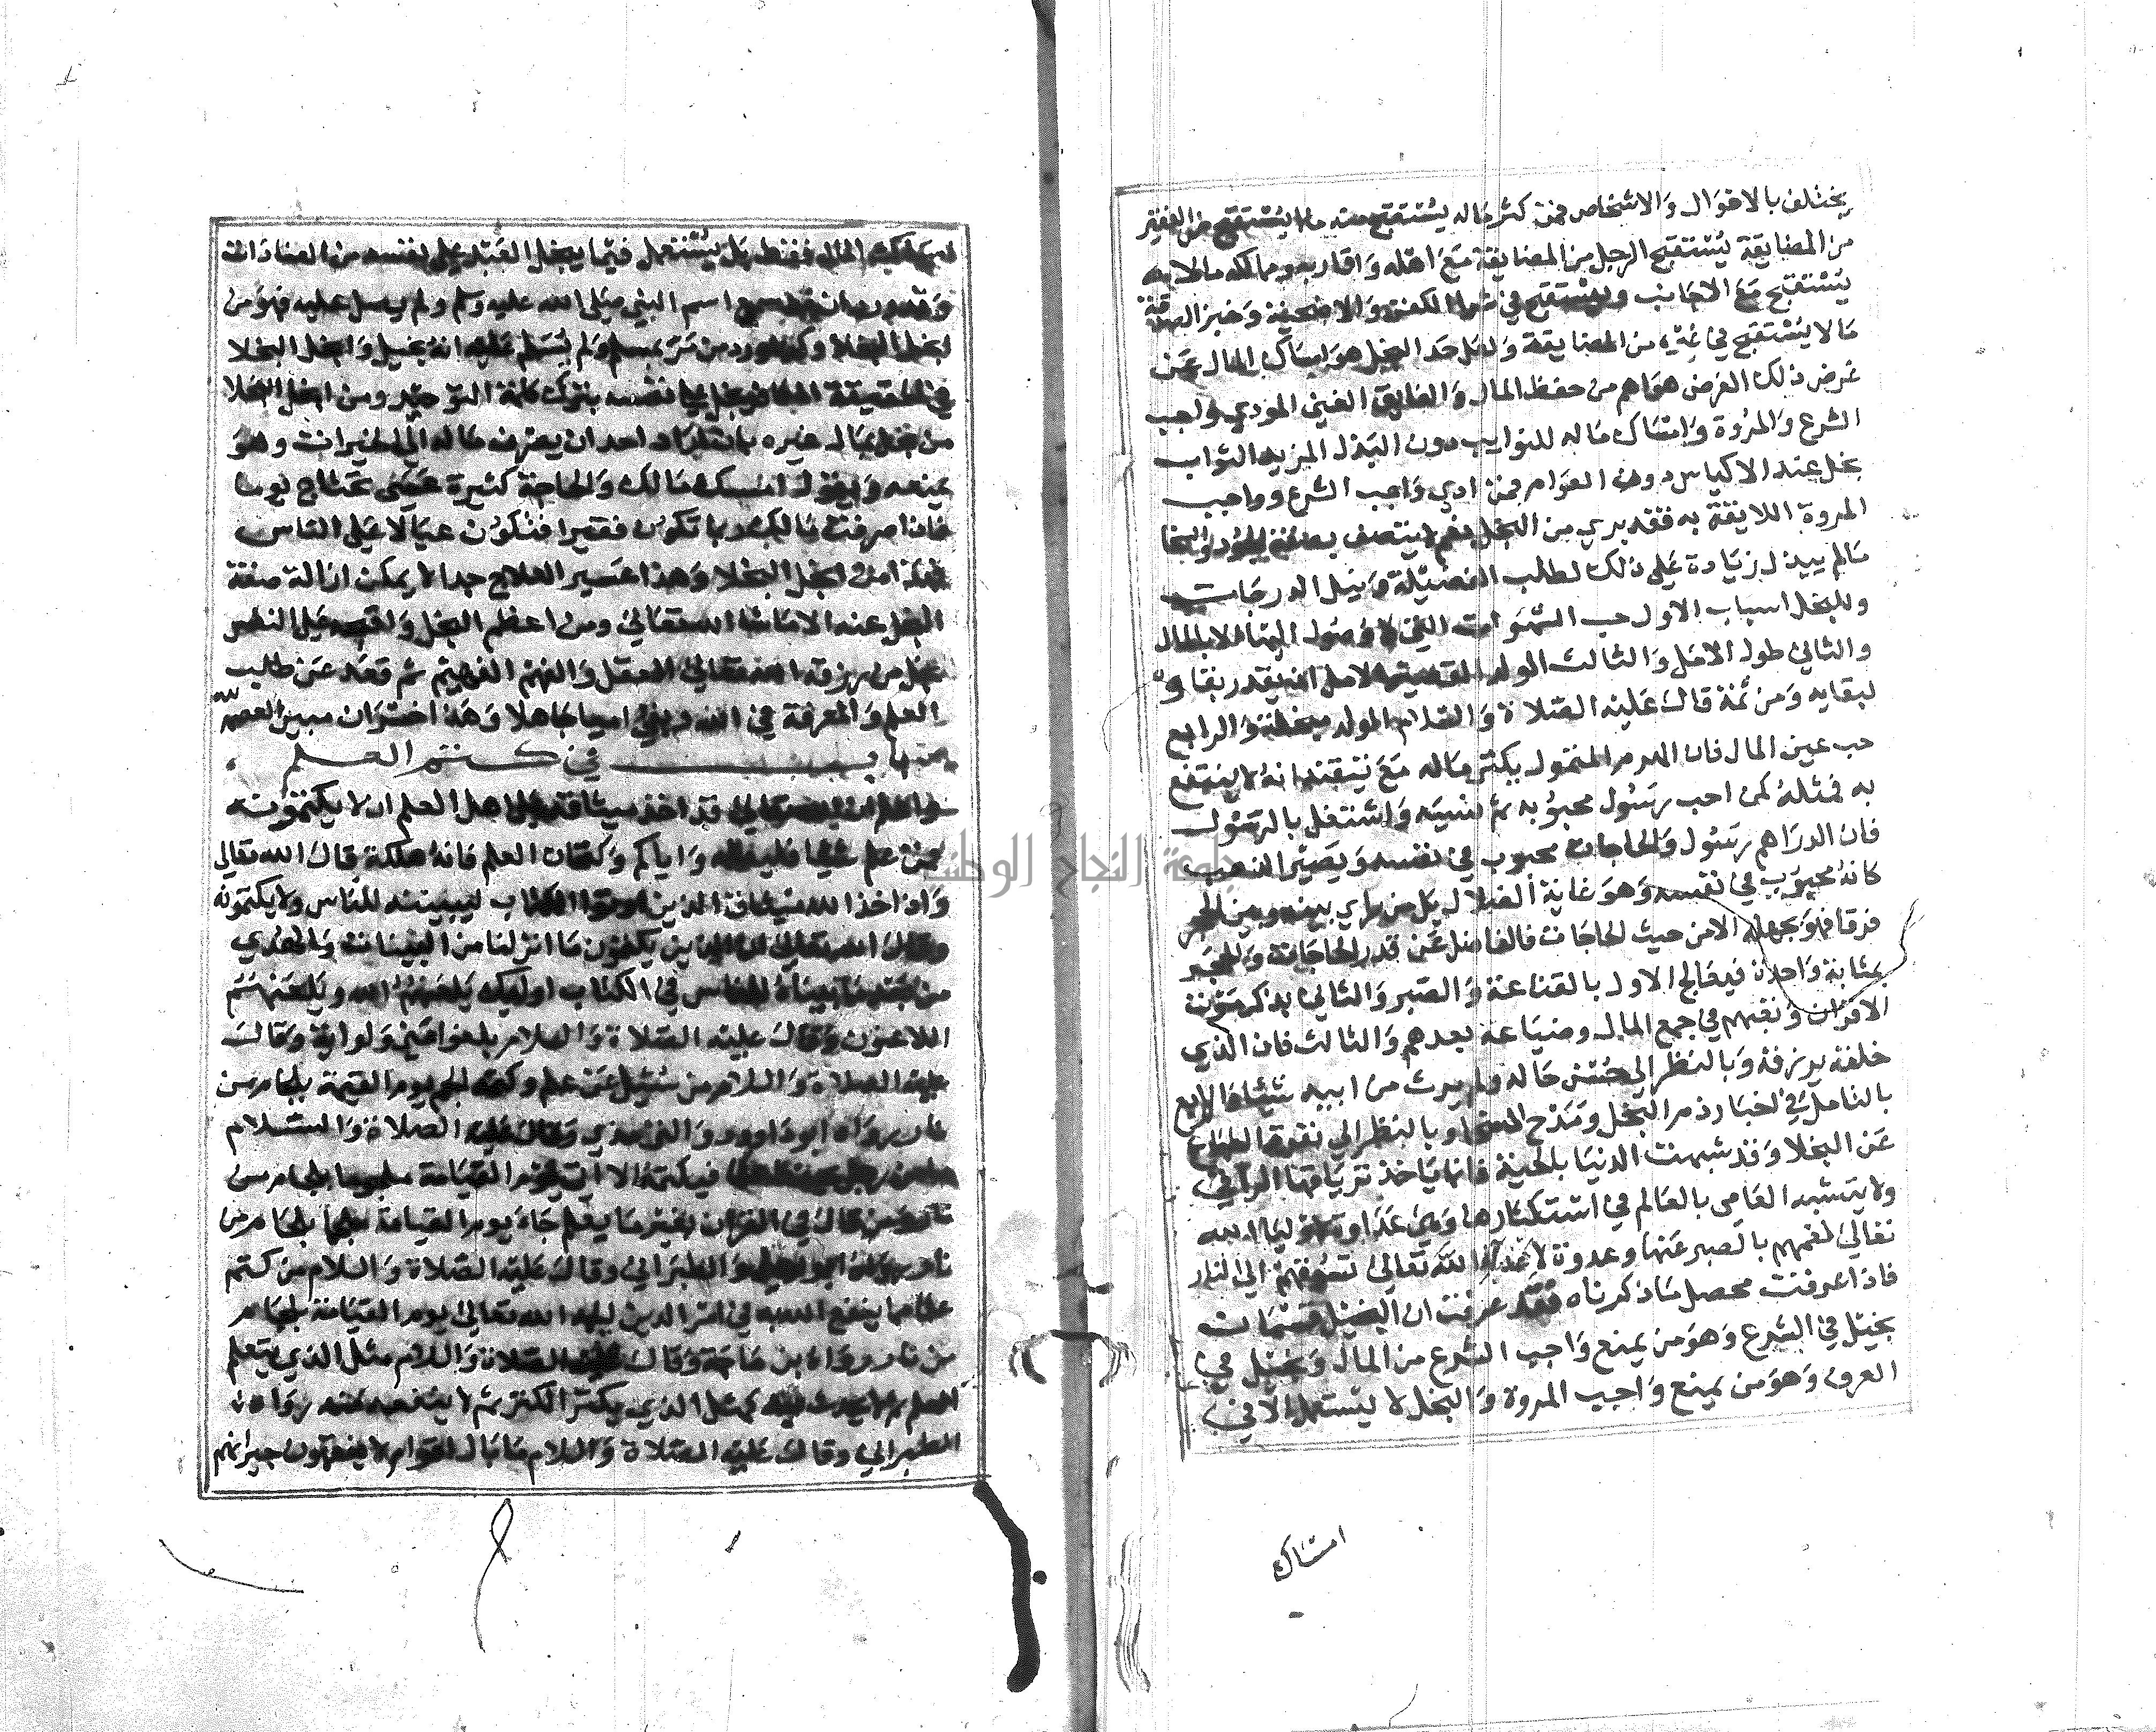 يختلف بالاقوال والاشخاص فمن كثر ماله يستقبح منه ما لا يستقبح من الفقير
من المضايقة يستقبح الرجل من المضايقة مع اهله واقاربه ومماليكه مالا
يستقبح مع الاجانب ويستقبح في شراء الكفن والاضحية وخبز الصدقة
مالا يستقبح في غيره من المضايقة ولعل حد البخل هو امساك المال عن
غرض ذلك الغرض هو اهم من حفظ المال الغني المودي لواجب
الشرع والمروة وامساك ماله للنوايب دون البذل المزيد الثواب
بخل عند الاكياس دون العوام فمن ادى واجب الشرع وواجب
المروة اللايقة به فقد بري من البخل نعم لا يتصف بصفة الجود والسخا
مالم يبذل زيادة على ذلك لطلب الفضيلة ونيل الدرجات
وللبخل اسباب الاول حب الشهوات التي لا وصول اليها الا بالمال
والثاني طول الامل والثالث الولد
لبقايه ومن ثمة قال عليه الصلاة والسلام الولد مبخلة والرابع
حب عين المال فان المتمول يكثر ماله مع تيقنه انه لا ينتفع
به فمثله كمن احب رسول محبوبه ثم نسيه واشتغل بالرسول
فان الدراهم رسول والحاجات محبوب في نفسه ويصير الذهب
كانه محبوب في نفسه وهو غاية الضلال بل من راى بينه وبين الحجر
فرقا فهو بجهله الا من حيث الحاجات فالفاضل عن قدر الحاجات والحجر
بمثابة واحدة فيعالج الاول بالقناعة والصبر والثاني بذكر موت
الاقران وتعبهم في جمع المال وضياعه بعدهم والثالث فان الذي
خلقه يرزقه وبالنظر الى حسن حاله ولم يرث من ابيه شيئا والرابع
بالتامل في اخبار ذم البخل ومدح السخا وبالنظر الى نفرة الطباع
عن البخلا وقد شبهت الدنيا بالحية فانها ياخذ ترياقها الراقي
ولا يتشبه العامي بالعالم في استكثارها وهي عداوة لله
تعالى لغمهم بالصبر عنها وعدوة لاعداء الله تعالى لسوقهم الى النار
فاذا عرفت محصل ما ذكرناه فقد عرفت ان البخيل قسمان
بخيل في الشرع وهو من يمنع واجب الشرع من المال وبخيل في
العرف وهو من يمنع واجب المروة والبخل لا يستعمل الا في
امساك
امساك المال فقط بل يستعمل فيما يبخل العبد على نفسه من العبادات
وقد ورد ان من سمع اسم النبي صلى الله عليه وسلم ولم يصل عليه فهو من
ابخل البخلا وكذا ورد من مر بمسلم ولم يسلم عليه انه بخيل وابخل البخلا
في الحقيقة الكافر بخل على نفسه بترك كلمة التوحيد ومن ابخل البخلا
من بخل بمال غيره احد ان يصرف ماله الى الخيرات وهو
يمنعه ويقول امسك مالك والحاجة كثيرة عسى تحتاج يوما
فاذا صرفت مالك تكون فقيرا فتكون عيالا على الناس
فهذا من ابخل البخلا وهذا عسير العلاج جدا لا يمكن ازالة صفة
البخل عنه الا ماشا الله تعالى ومن اعظم البخل واقبحه
بخل من رزقه الله تعالى العقل والفهم ثم قعد عن طلب
العلم والمعرفة في الله وبقي اميا جاهلا وهذا خسران مبين
باب في كتم العلم
واعلم ان الله تعالى قد اخذ ميثاقه على اهل العلم ان لا يكتمونه
فمن علم شيئا فليعلمه واياكم وكتمان العلم فانه هلكة قال الله تعالى
واذ اخذ الله ميثاق الذين اوتوا الكتاب ليبيننه للناس ولا يكتمونه
وقال الله تعالى ان الذين يكتمون ما انزلنا من البينات والهدى
من بعد ما بيناه للناس في الكتاب اوليك يلعنهم الله ويلعنهم
اللاعنون وقال عليه الصلاة والسلام بلغوا عني ولو اية وقال
عليه الصلاة والسلام من سئل عن علم وكتمه الجم يوم القيمة بلجام من
نار رواه ابو داود والترمذي وقال عليه الصلاة والسلام
ما من رجل يحفظ علما فيكتمه الا اتى يوم القيامة ملجوما بلجام من
نار ومن قال في القران بغير ما يعلم جاء يوم القيامة ملجما بلجام من
نار رواه ابو يعلى والطبراني وقال عليه الصلاة والسلام من كتم
علما مما ينفع الله به في امر الدين الجمه الله تعالى يوم القيامة بلجام
من نار رواه ابن ماجة وقال عليه الصلاة والسلام مثل الذي يتعلم
العلم ثم لا يحدث به كمثل الذي يكنز الكنز ثم لا ينفق منه رواه
الطبراني وقال عليه الصلاة والسلام ما بال اقوام لا يفقهون جيرانهم
جامعة النجاح الوطنية